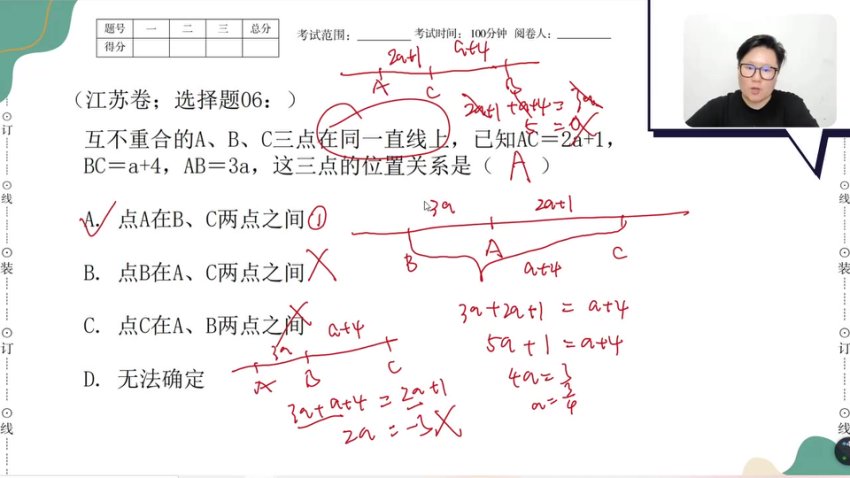 题号 一 二 三 总分
得分
考试范围：________ 考试时间：100分钟 阅卷人：________
2a+1 a+4
A C B
（江苏卷；选择题06：）
2a+1+a+4=3a
5=0
互不重合的A、B、C三点在同一直线上，已知AC＝2a+1，
BC＝a+4，AB＝3a，这三点的位置关系是（ A ）
3a 2a+1
A. 点A在B、C两点之间①
B A C
a+4
B. 点B在A、C两点之间
3a+2a+1=a+4
C. 点C在A、B两点之间
5a+1=a+4
3a a+4
A B C
4a=3
D. 无法确定
a=3/4
3a+a+4=2a+1
2a=-3
订
线
装
订
线
订
线
装
订
线